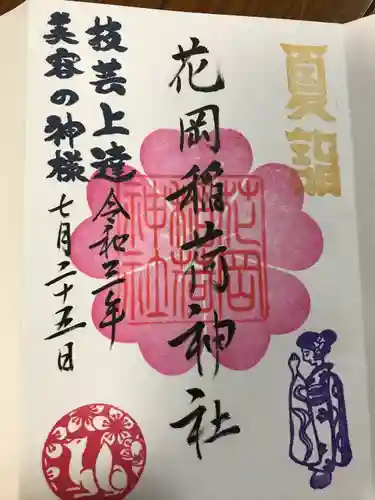 夏詣
花岡稲荷神社
花岡稲荷神社
技芸上達
美容の神様
令和三年
七月二十五日